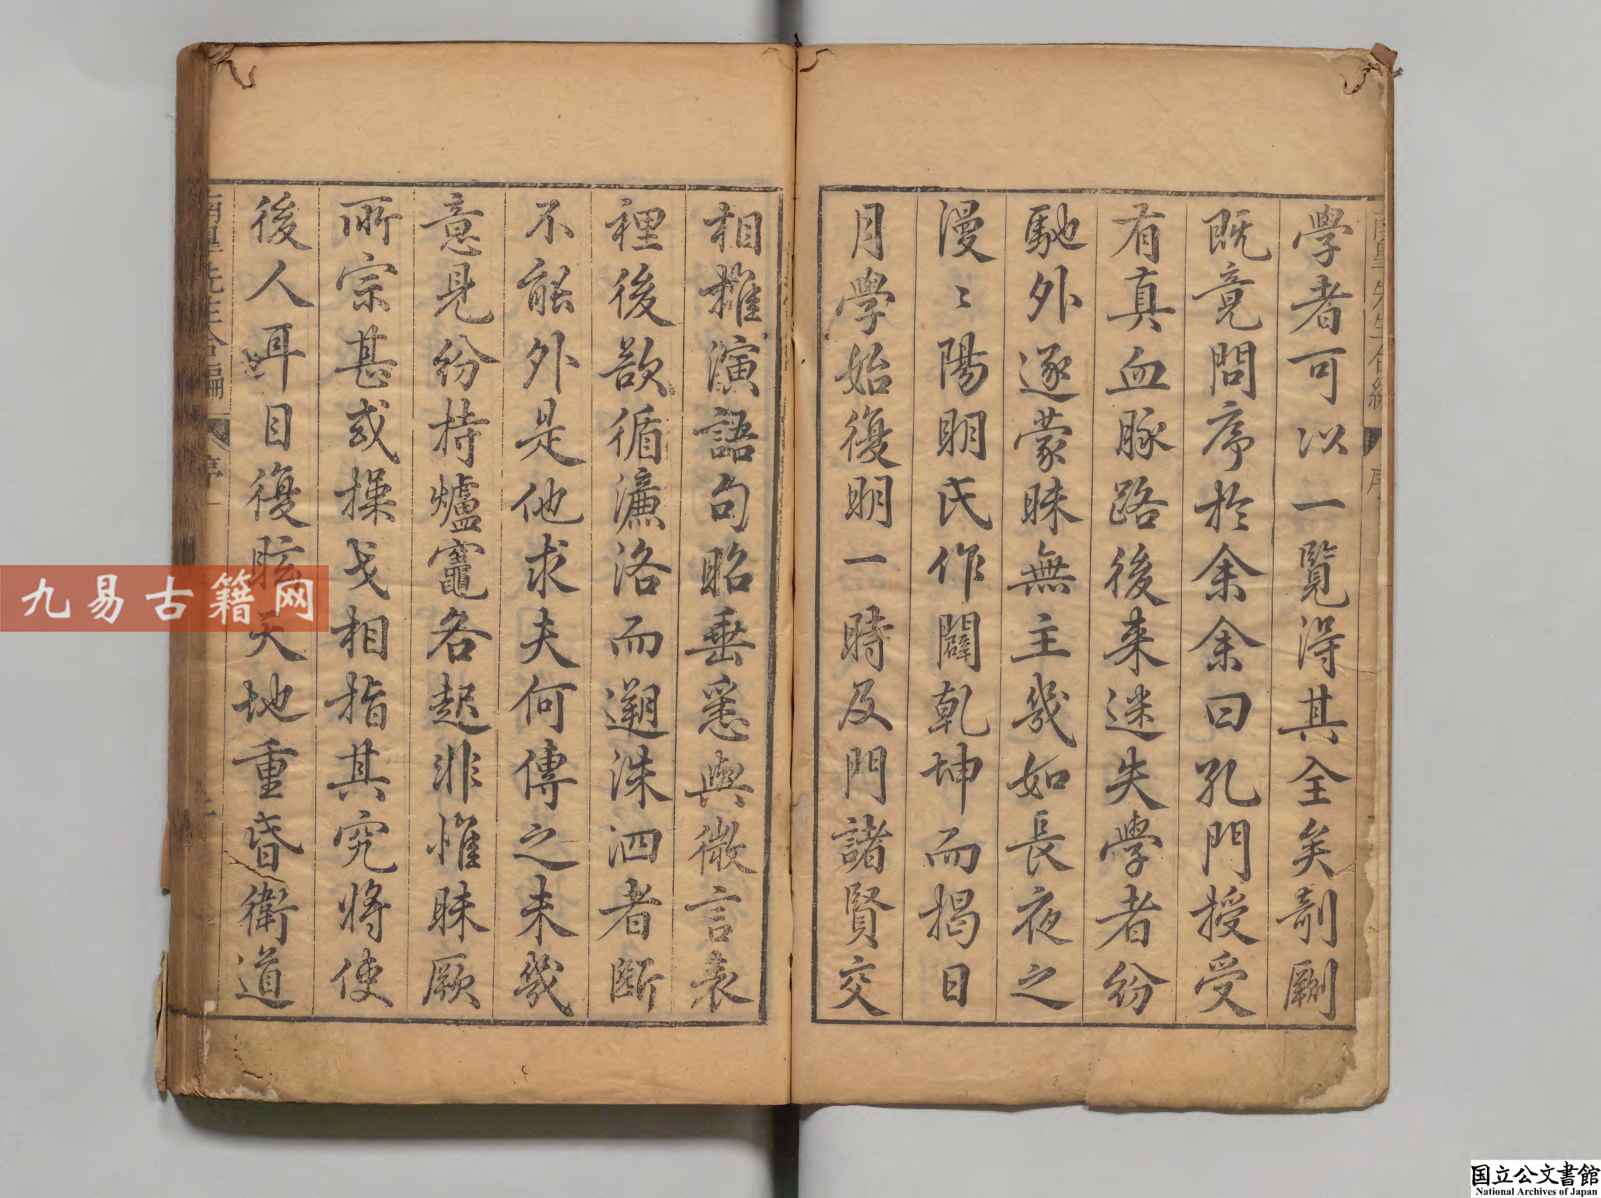 學者可以一覽得其全矣剞劂
既竟問序於余余曰孔門授受
有真血脉路後来迷失學者紛
馳外逐蒙昧無主幾如長夜之
漫漫陽明氏作闢乾坤而揭日
月學始復明一時及門諸賢交
相推演語句昭垂悉與微言表
裡後欲循濂洛而遡洙泗者斷
不能外是他求夫何傳之未幾
意見紛持爐竈各起非惟昧厥
所宗甚或操戈相指其究將使
後人耳目復眩天地重昏衛道
先生合編
序
九易古籍网
国立公文書館
National Archives of Japan